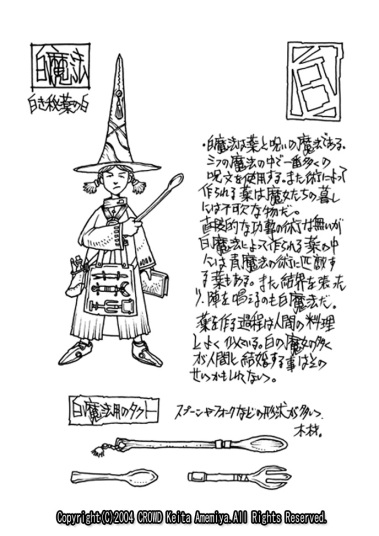 白魔法
白き秘薬の白
白
・白魔法は薬と呪いの魔法である。
三つの魔法の中で一番多くの
呪文を使用する。また術によって
作られる薬は魔女たちの暮し
には不可欠な物だ。
直接的な攻撃の術は無いが
白魔法によって作られる薬の中
には青魔法の術に匹敵す
る薬もある。また結界を張った
り、陣を唱えるのも白魔法だ。
薬を作る過程は人間の料理
とよく似ている。白の魔女の多く
が人間と結婚する事はその
せいかもしれない。
白い魔法用のタクト
スプーンやフォークなどの形状が多い。
木材。
Copyright(C)2004 CROWD Keita Amemiya.All Rights Reserved.